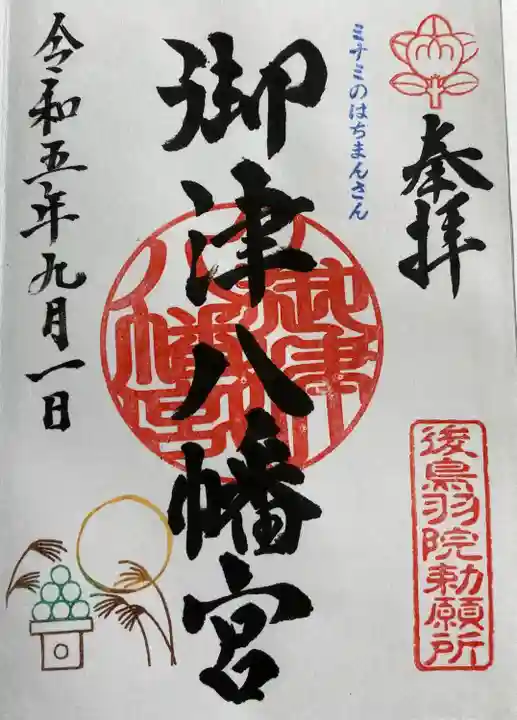 奉拝
後鳥羽院勅願所
ミナミのはちまんさん
御津八幡宮
御津八幡宮
令和五年九月一日